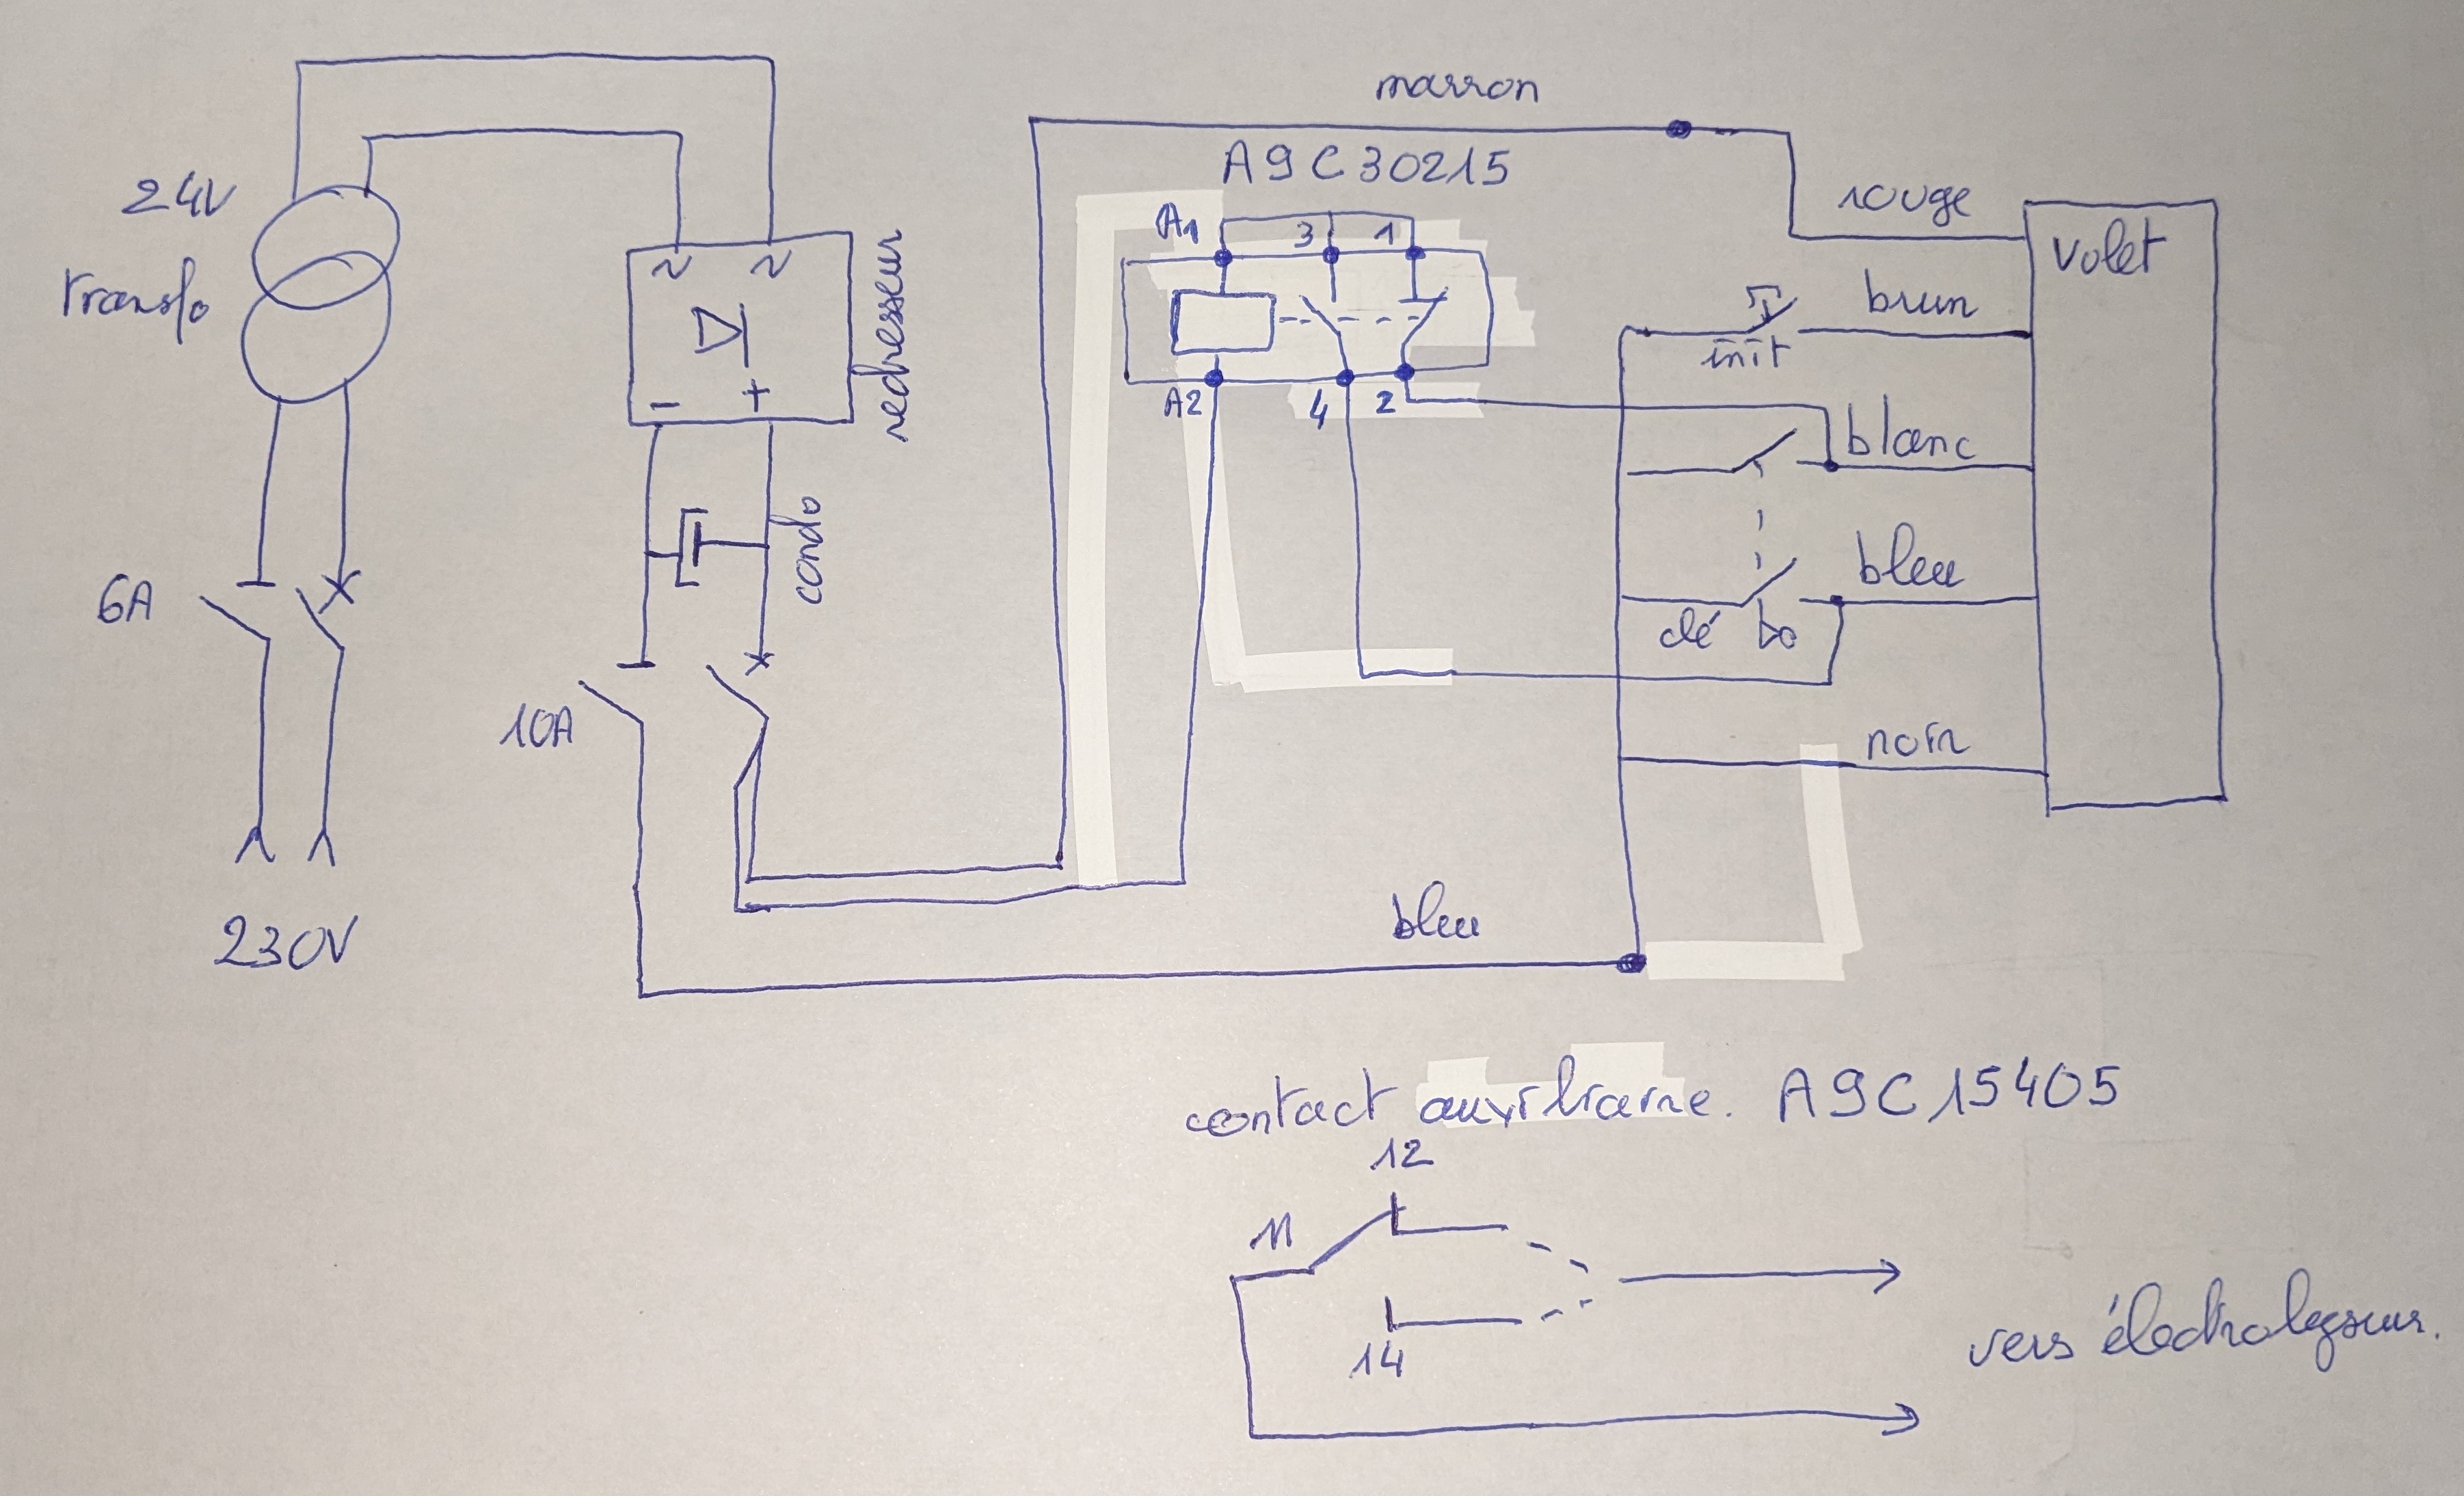 marron
A9C30215
24V
transfo
rouge
A1
3
1
volet
~
~
redresseur
brun
init
-
+
A2
4
2
blanc
condo
6A
bleu
clé
10A
noir
230V
bleu
contact auxiliaire. A9C15405
12
11
14
vers électrolyseur.